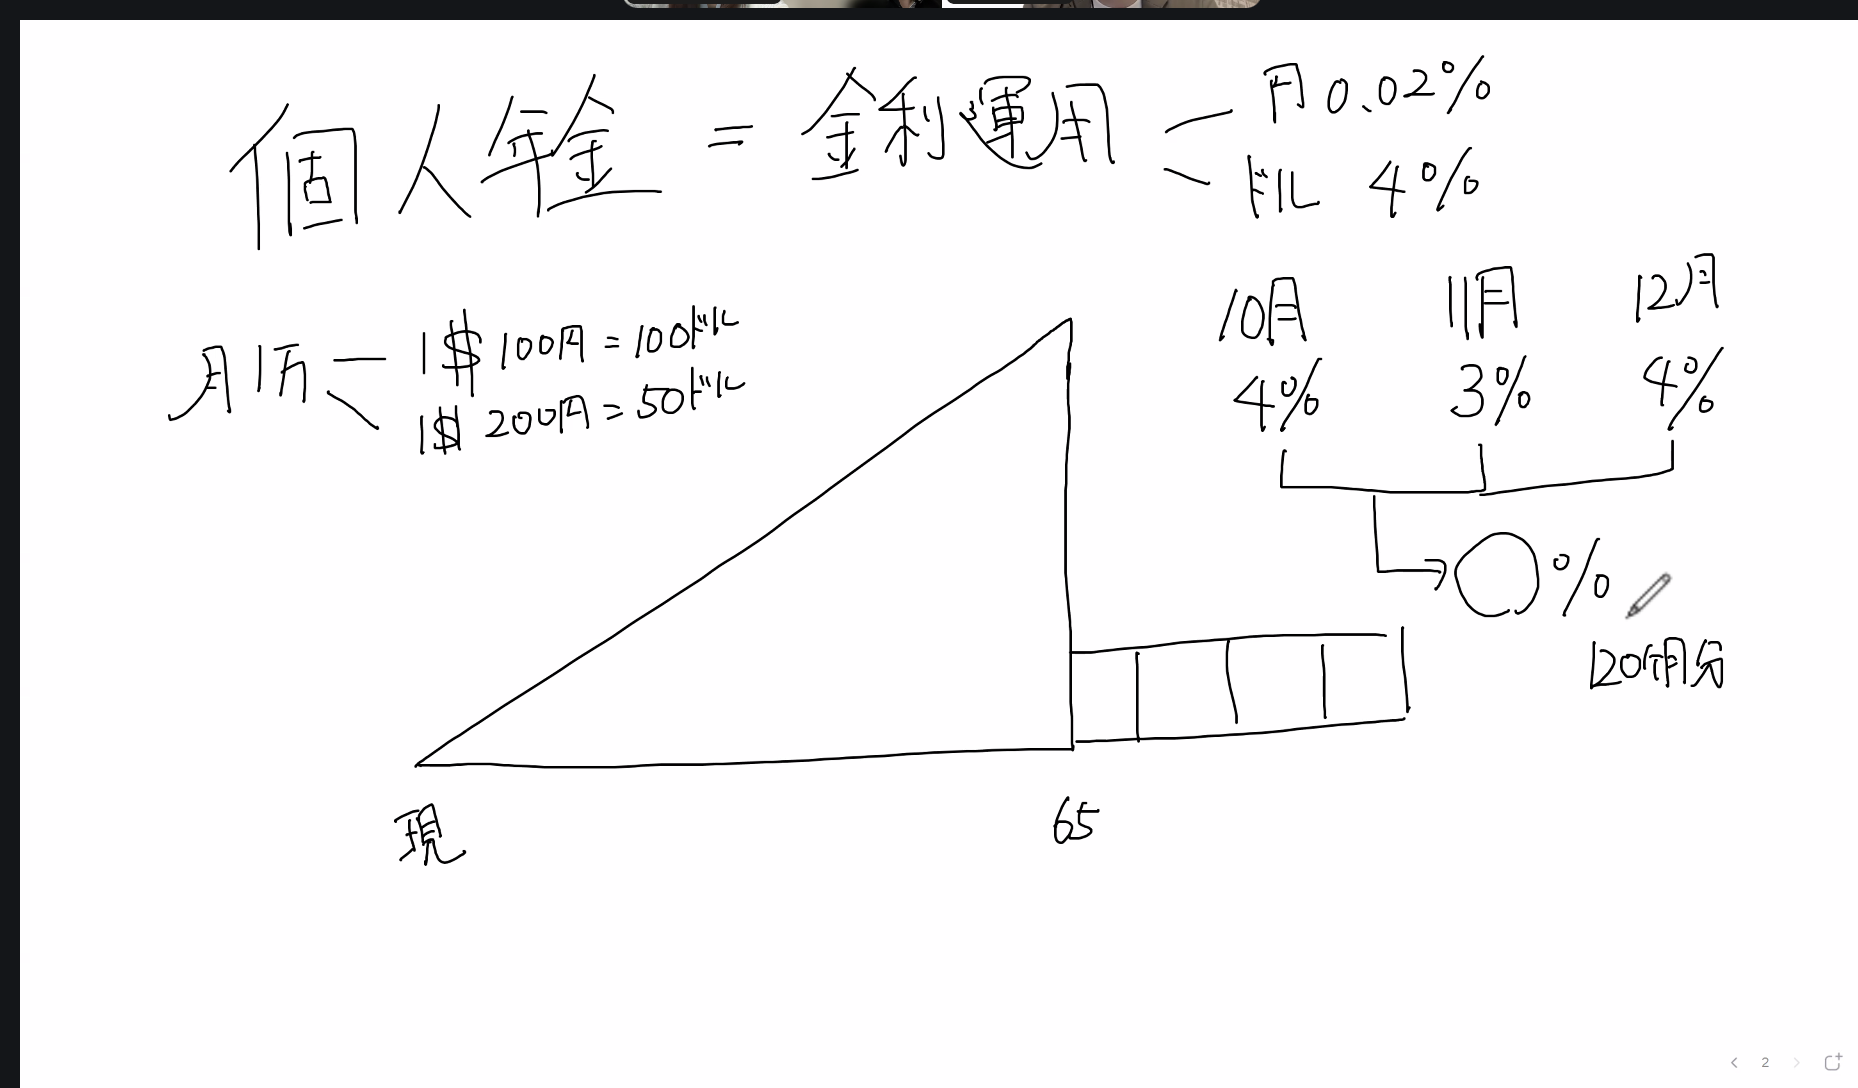 個人年金 = 金利運用
円 0.02%
ドル 4%
月1万
1$ 100円 = 100ドル
1$ 200円 = 50ドル
10月 11月 12月
4% 3% 4%
○%
120ケ月分
現
65
2